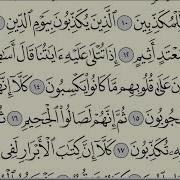 لْمُكَذِّبِينَ ١٠ ٱلَّذِينَ يُكَذِّبُونَ بِيَوْمِ ٱلدِّينِ
مُعْتَدٍ أَثِيمٍ ١٢ إِذَا تُتْلَىٰ عَلَيْهِ ءَايَٰتُنَا قَالَ أَسَٰ
عَلَىٰ قُلُوبِهِم مَّا كَانُوا۟ يَكْسِبُونَ ١٤ كَلَّآ إِنَّ
حْجُوبُونَ ١٥ ثُمَّ إِنَّهُمْ لَصَالُوا۟ ٱلْجَحِيمِ ١٦
بِهِۦ تُكَذِّبُونَ ١٧ كَلَّآ إِنَّ كِتَٰبَ ٱلْأَبْرَارِ لَفِى